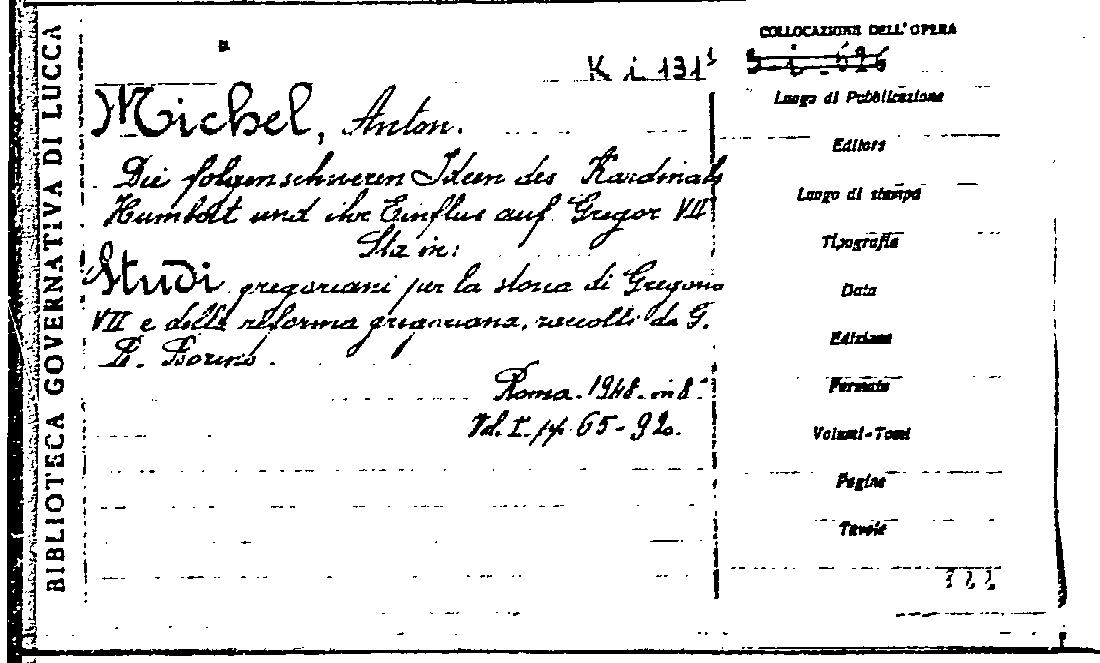 BIBLIOTECA GOVERNATIVA DI LUCCA
K i 131¹
Michel, Anton.
Die folgenschweren Ideen des Kardinals
Humbert und ihr Einflus auf Gregor VII
Sta in:
Studi gregoriani per la storia di Gregorio
VII e della riforma gregoriana, raccolti da G.
B. Borino.
Roma. 1948. in 8°
Vol. I. pp. 65-92.
COLLOCAZIONE DELL'OPERA
Luogo di Pubblicazione
Editore
Luogo di stampa
Tipografia
Data
Edizione
Formato
Volumi-Tomi
Pagine
Tavole